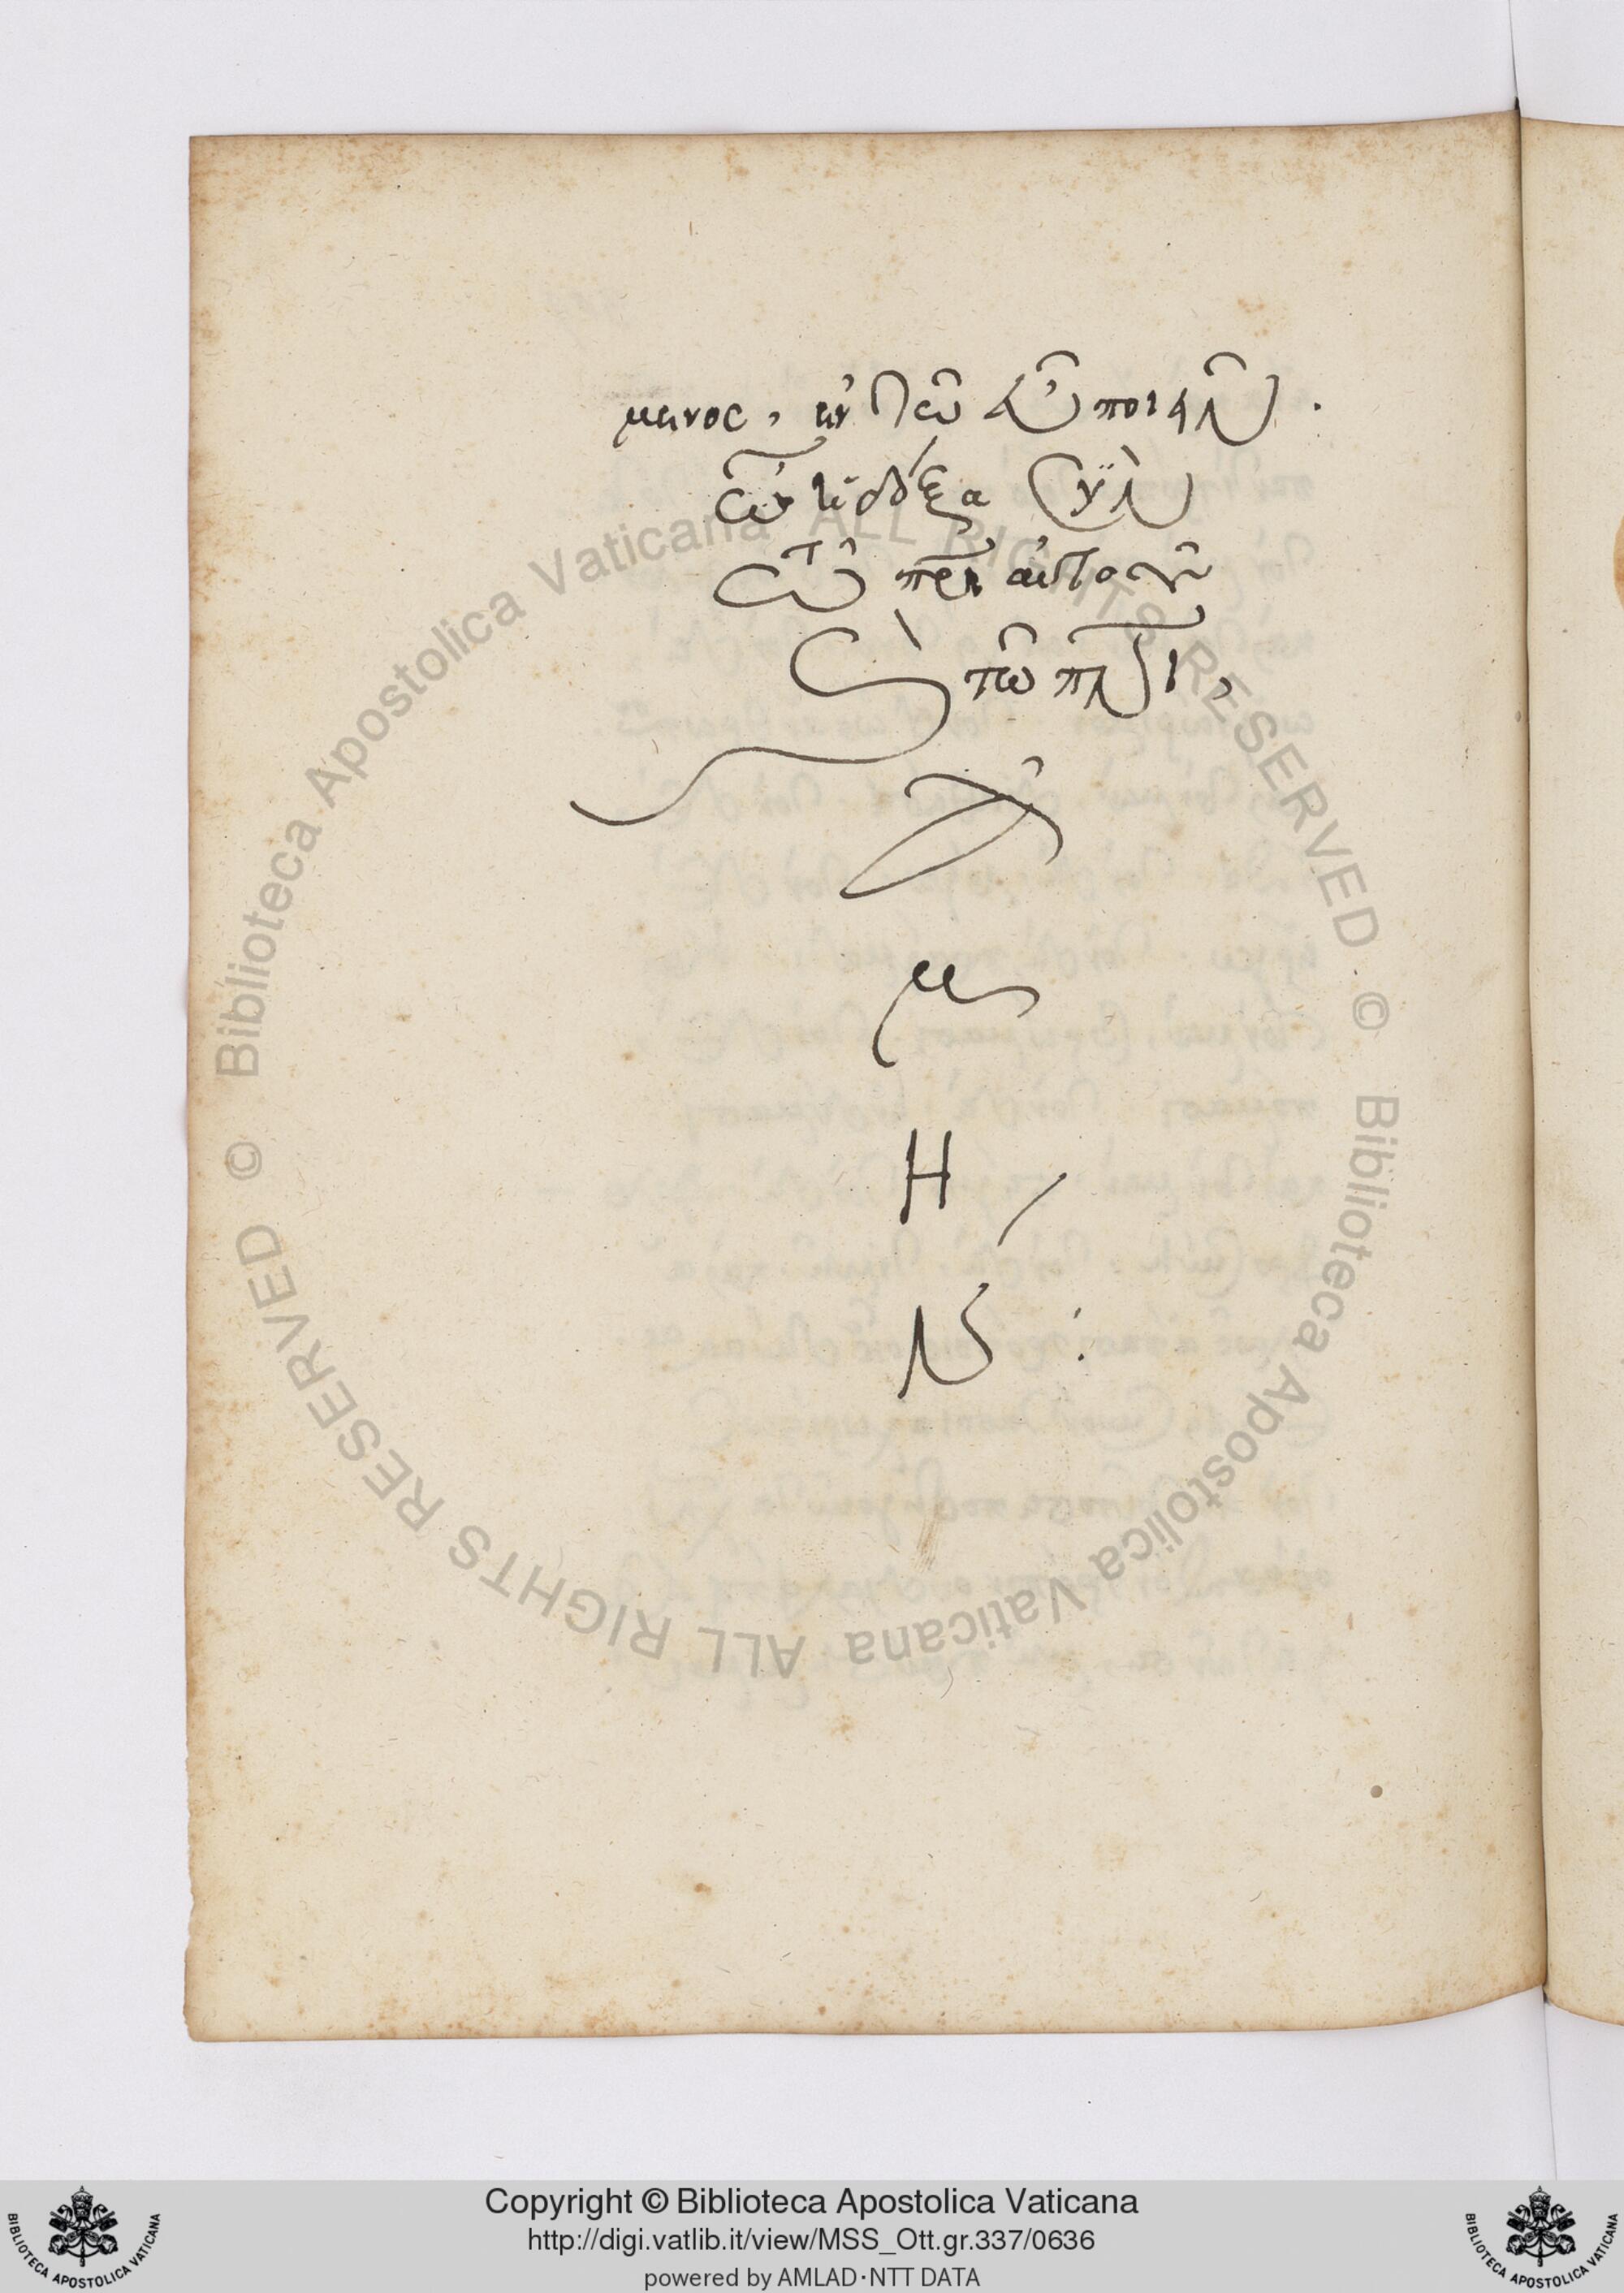 μενος, ἐν τῶ
ἡ δόξα σὺν
τῶ πρι αὐτοῦ
σὺν τῶ πνι,
ἀ
μ
Η
Ν :
Copyright © Biblioteca Apostolica Vaticana
http://digi.vatlib.it/view/MSS_Ott.gr.337/0636
powered by AMLAD·NTT DATA
© Biblioteca Apostolica Vaticana ALL RIGHTS RESERVED
© Biblioteca Apostolica Vaticana ALL RIGHTS RESERVED
BIBLIOTECA APOSTOLICA VATICANA
BIBLIOTECA APOSTOLICA VATICANA